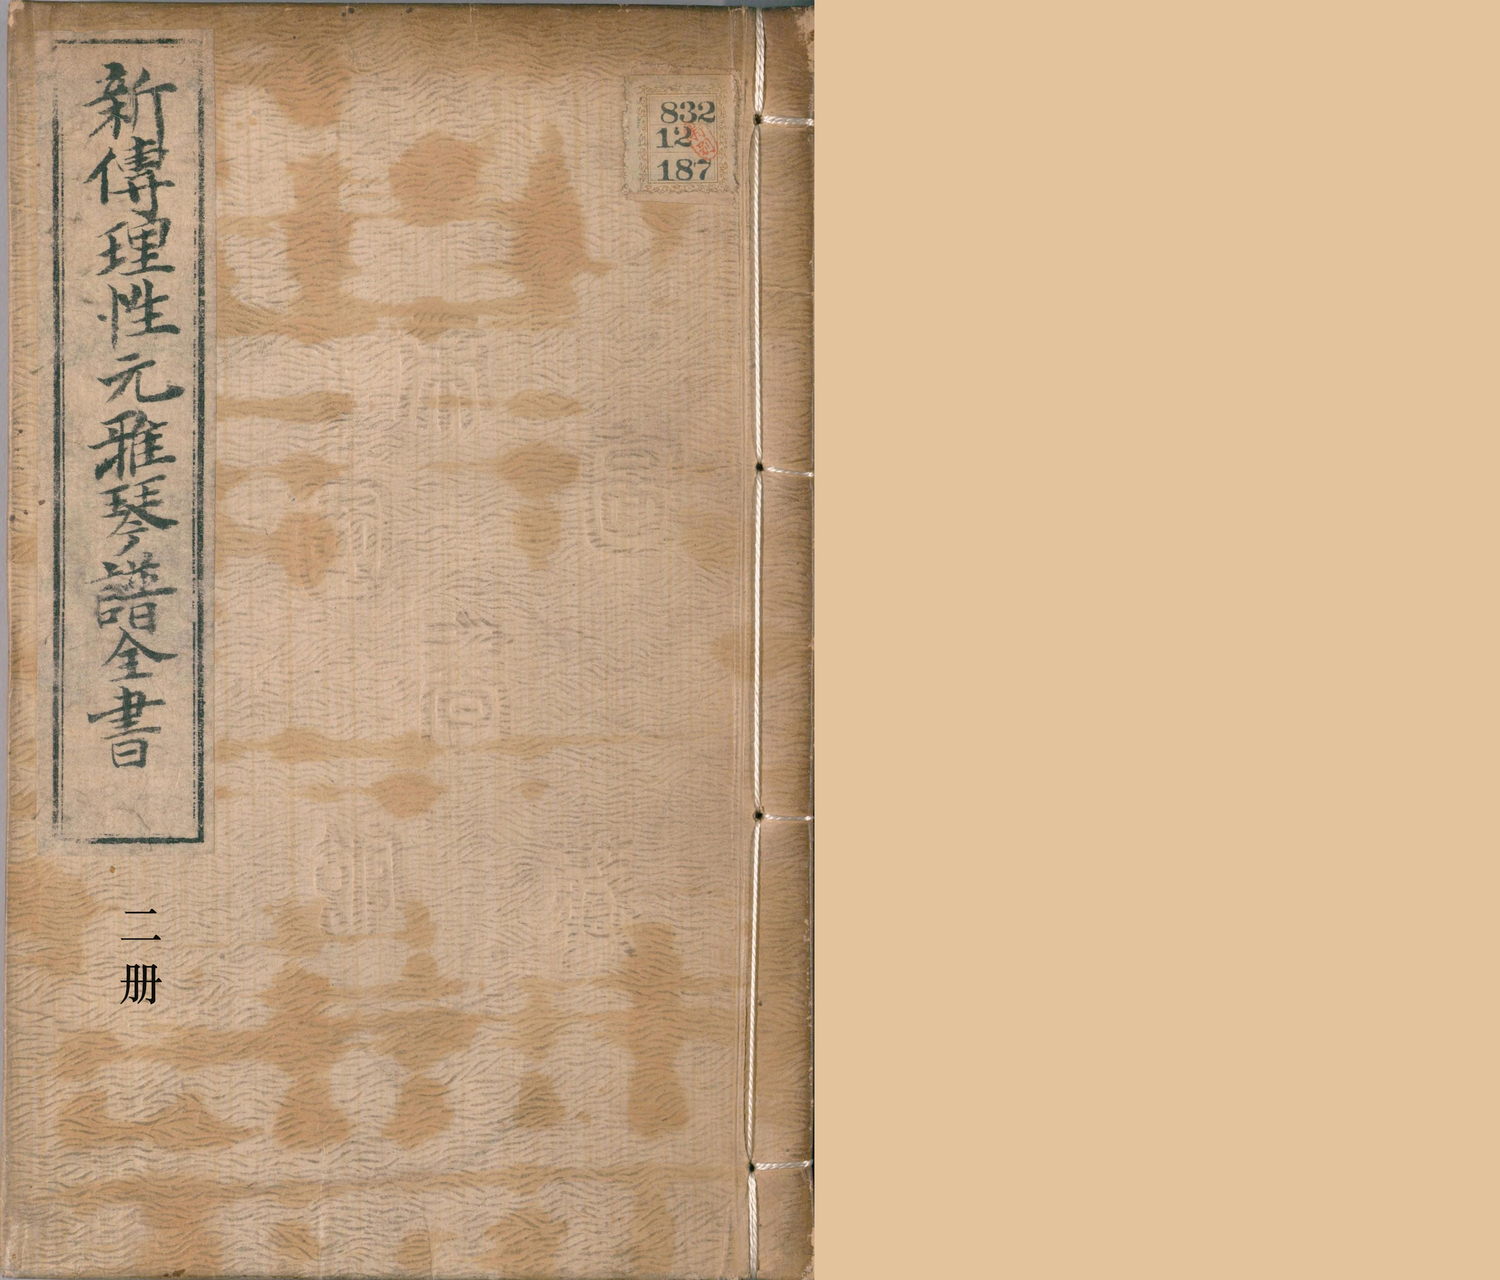 832
12
187
新傳理性元雅琴譜全書
二册